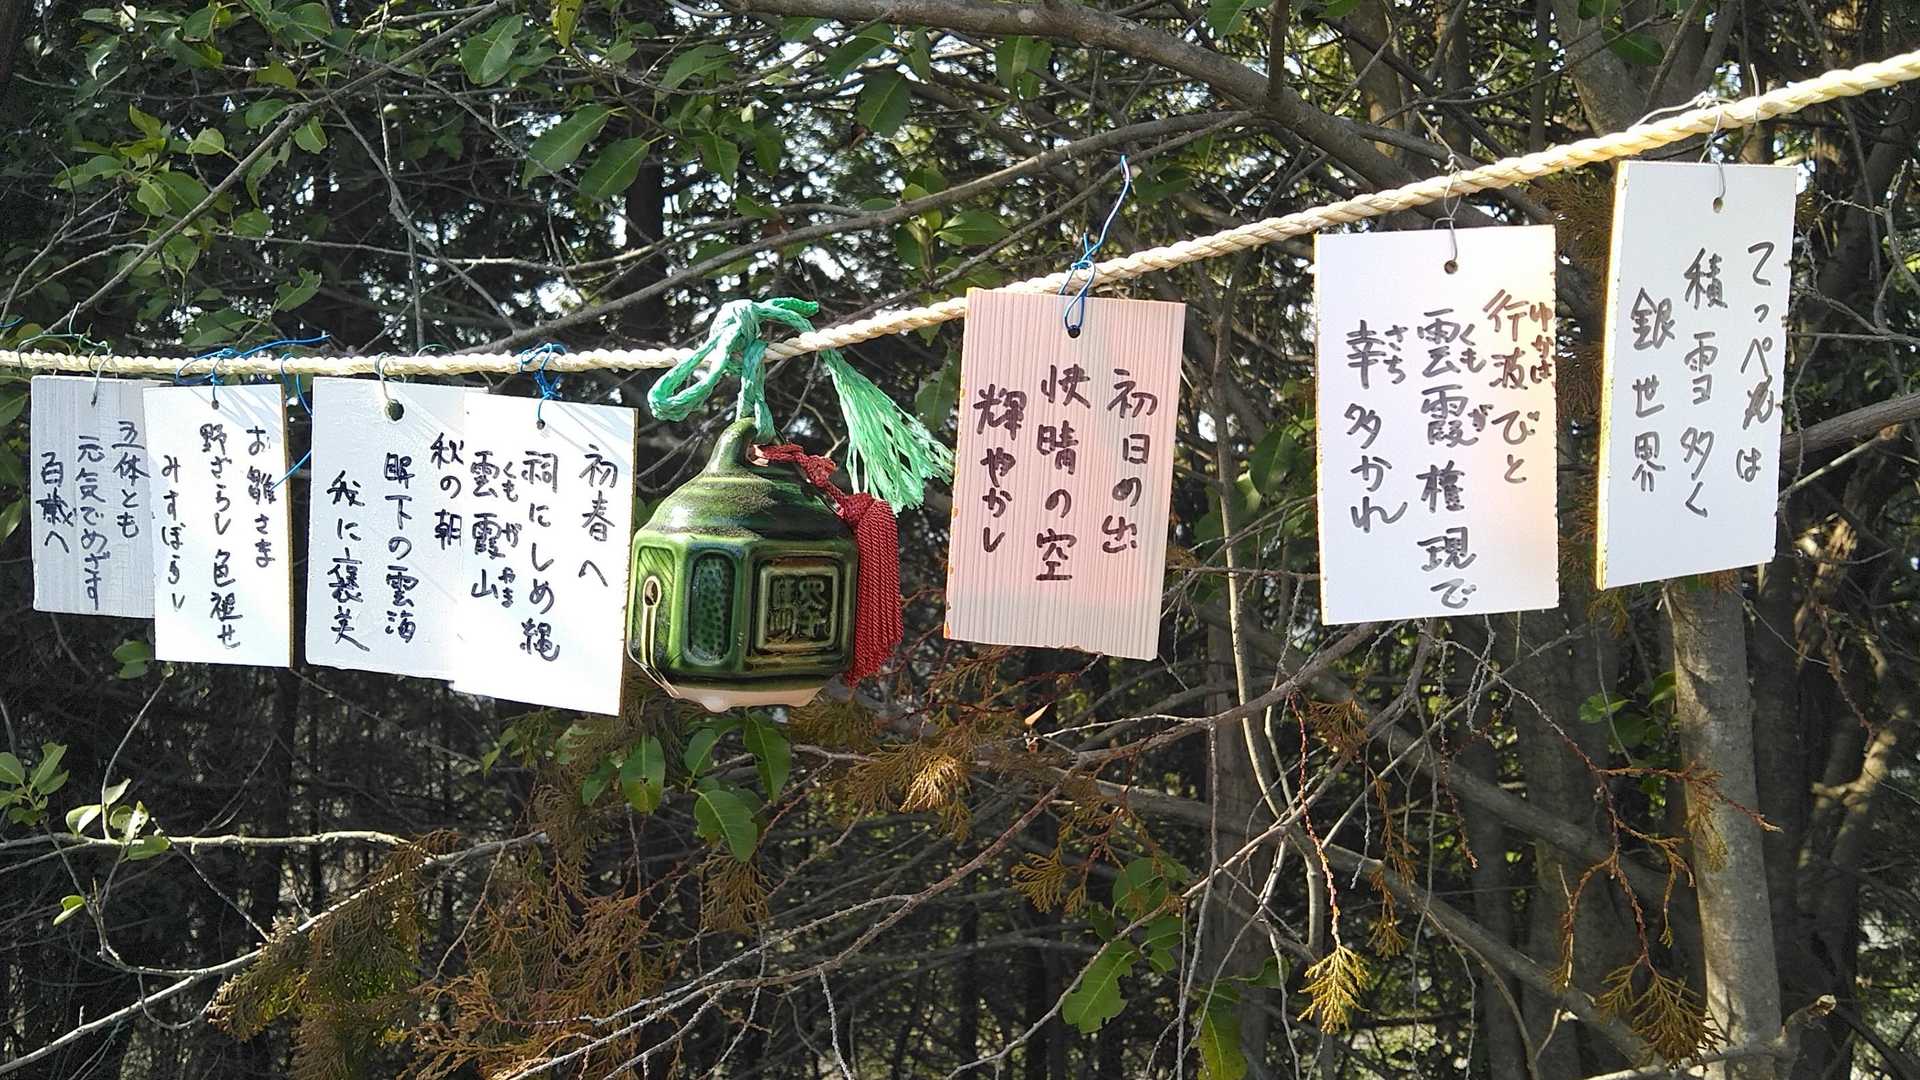 てっぺんは
積雪多く
銀世界
ゆかば
行波びと
くもが
雲霞権現で
さち
幸多かれ
初日の出
快晴の空
輝やかし
初春へ
祠にしめ縄
くもがやま
雲霞山
秋の朝
眼下の雲海
我に褒美
お雛さま
野ざらし色褪せ
みすぼらし
五体とも
元気でめざす
百歳へ